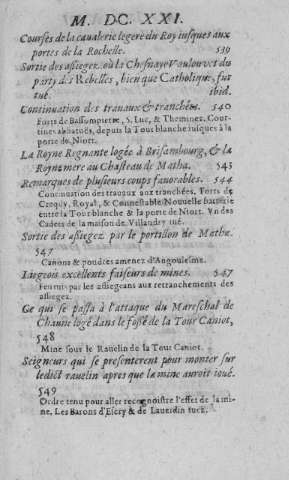 M. DC. XXI.
Courses de la caualerie legere du Roy iusques aux
portes de la Rochelle. 539
Sortie des assiegez, où la Chesnaye Voulouvet du
party des Rebelles, bien que Catholique, fut
tué. ibid.
Continuation des trauaux & tranchées. 540
Forts de Bassompierre, S. Luc, & Themines. Cour-
tines abbatuës, depuis la Tour blanche iusques à la
porte de Niort.
La Royne Regnante logée à Brisambourg, & la
Royne mere au Chasteau de Matha. 543
Remarques de plusieurs coups fauorables. 544
Continuation des trauaux aux tranchées. Forts de
Crequy, Royal, & Connestable. Nouuelle batterie
entre la Tour blanche & la porte de Niort. Vn des
Cadets de la maison de Villandry tué.
Sortie des assiegez par le portillon de Matha.
547
Canons & poudres amenez d'Angoulesme.
Liegeois excellents faiseurs de mines. 547
Feu mis par les assiegeans aux retranchements des
assiegez.
Ce qui se passa à l'attaque du Mareschal de
Chaune logé dans le fossé de la Tour Caniot,
548
Mine sous le Rauelin de la Tour Caniot.
Seigneurs qui se presenterent pour monter sur
ledict rauelin apres que la mine auroit ioué.
549
Ordre tenu pour aller recognoistre l'effet de la mi-
ne, Les Barons d'Escry & de Lauerdin tuez.